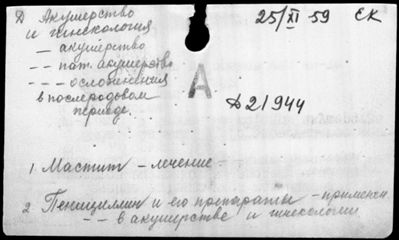 Д Акушерство
и гинекология
– акушерство
– – пат. акушерство
– – – осложнения
в послеродовом
периоде.
25/XI 59 ЕК
А
Д 21944
1. Мастит – лечение –
2. Пенициллин и его препараты – применен
– – в акушерстве и гинекологии